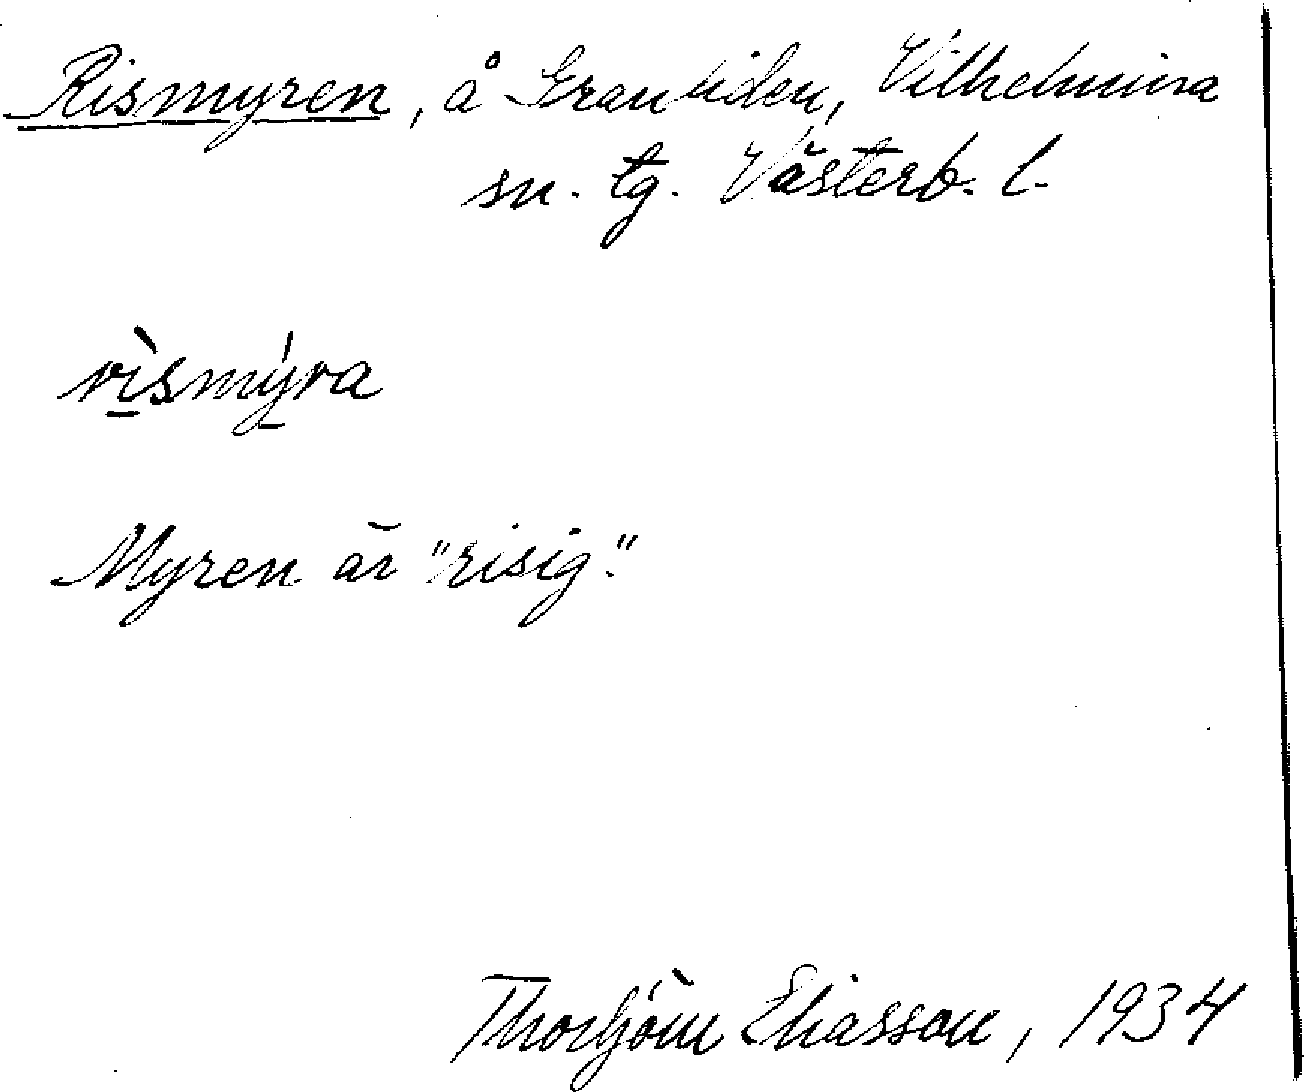 Rismyren, å Granliden, Vilhelmina
sn. tg. Västerb. l.
rìsmýra
Myren är "risig".
Thorbjörn Eliasson, 1934